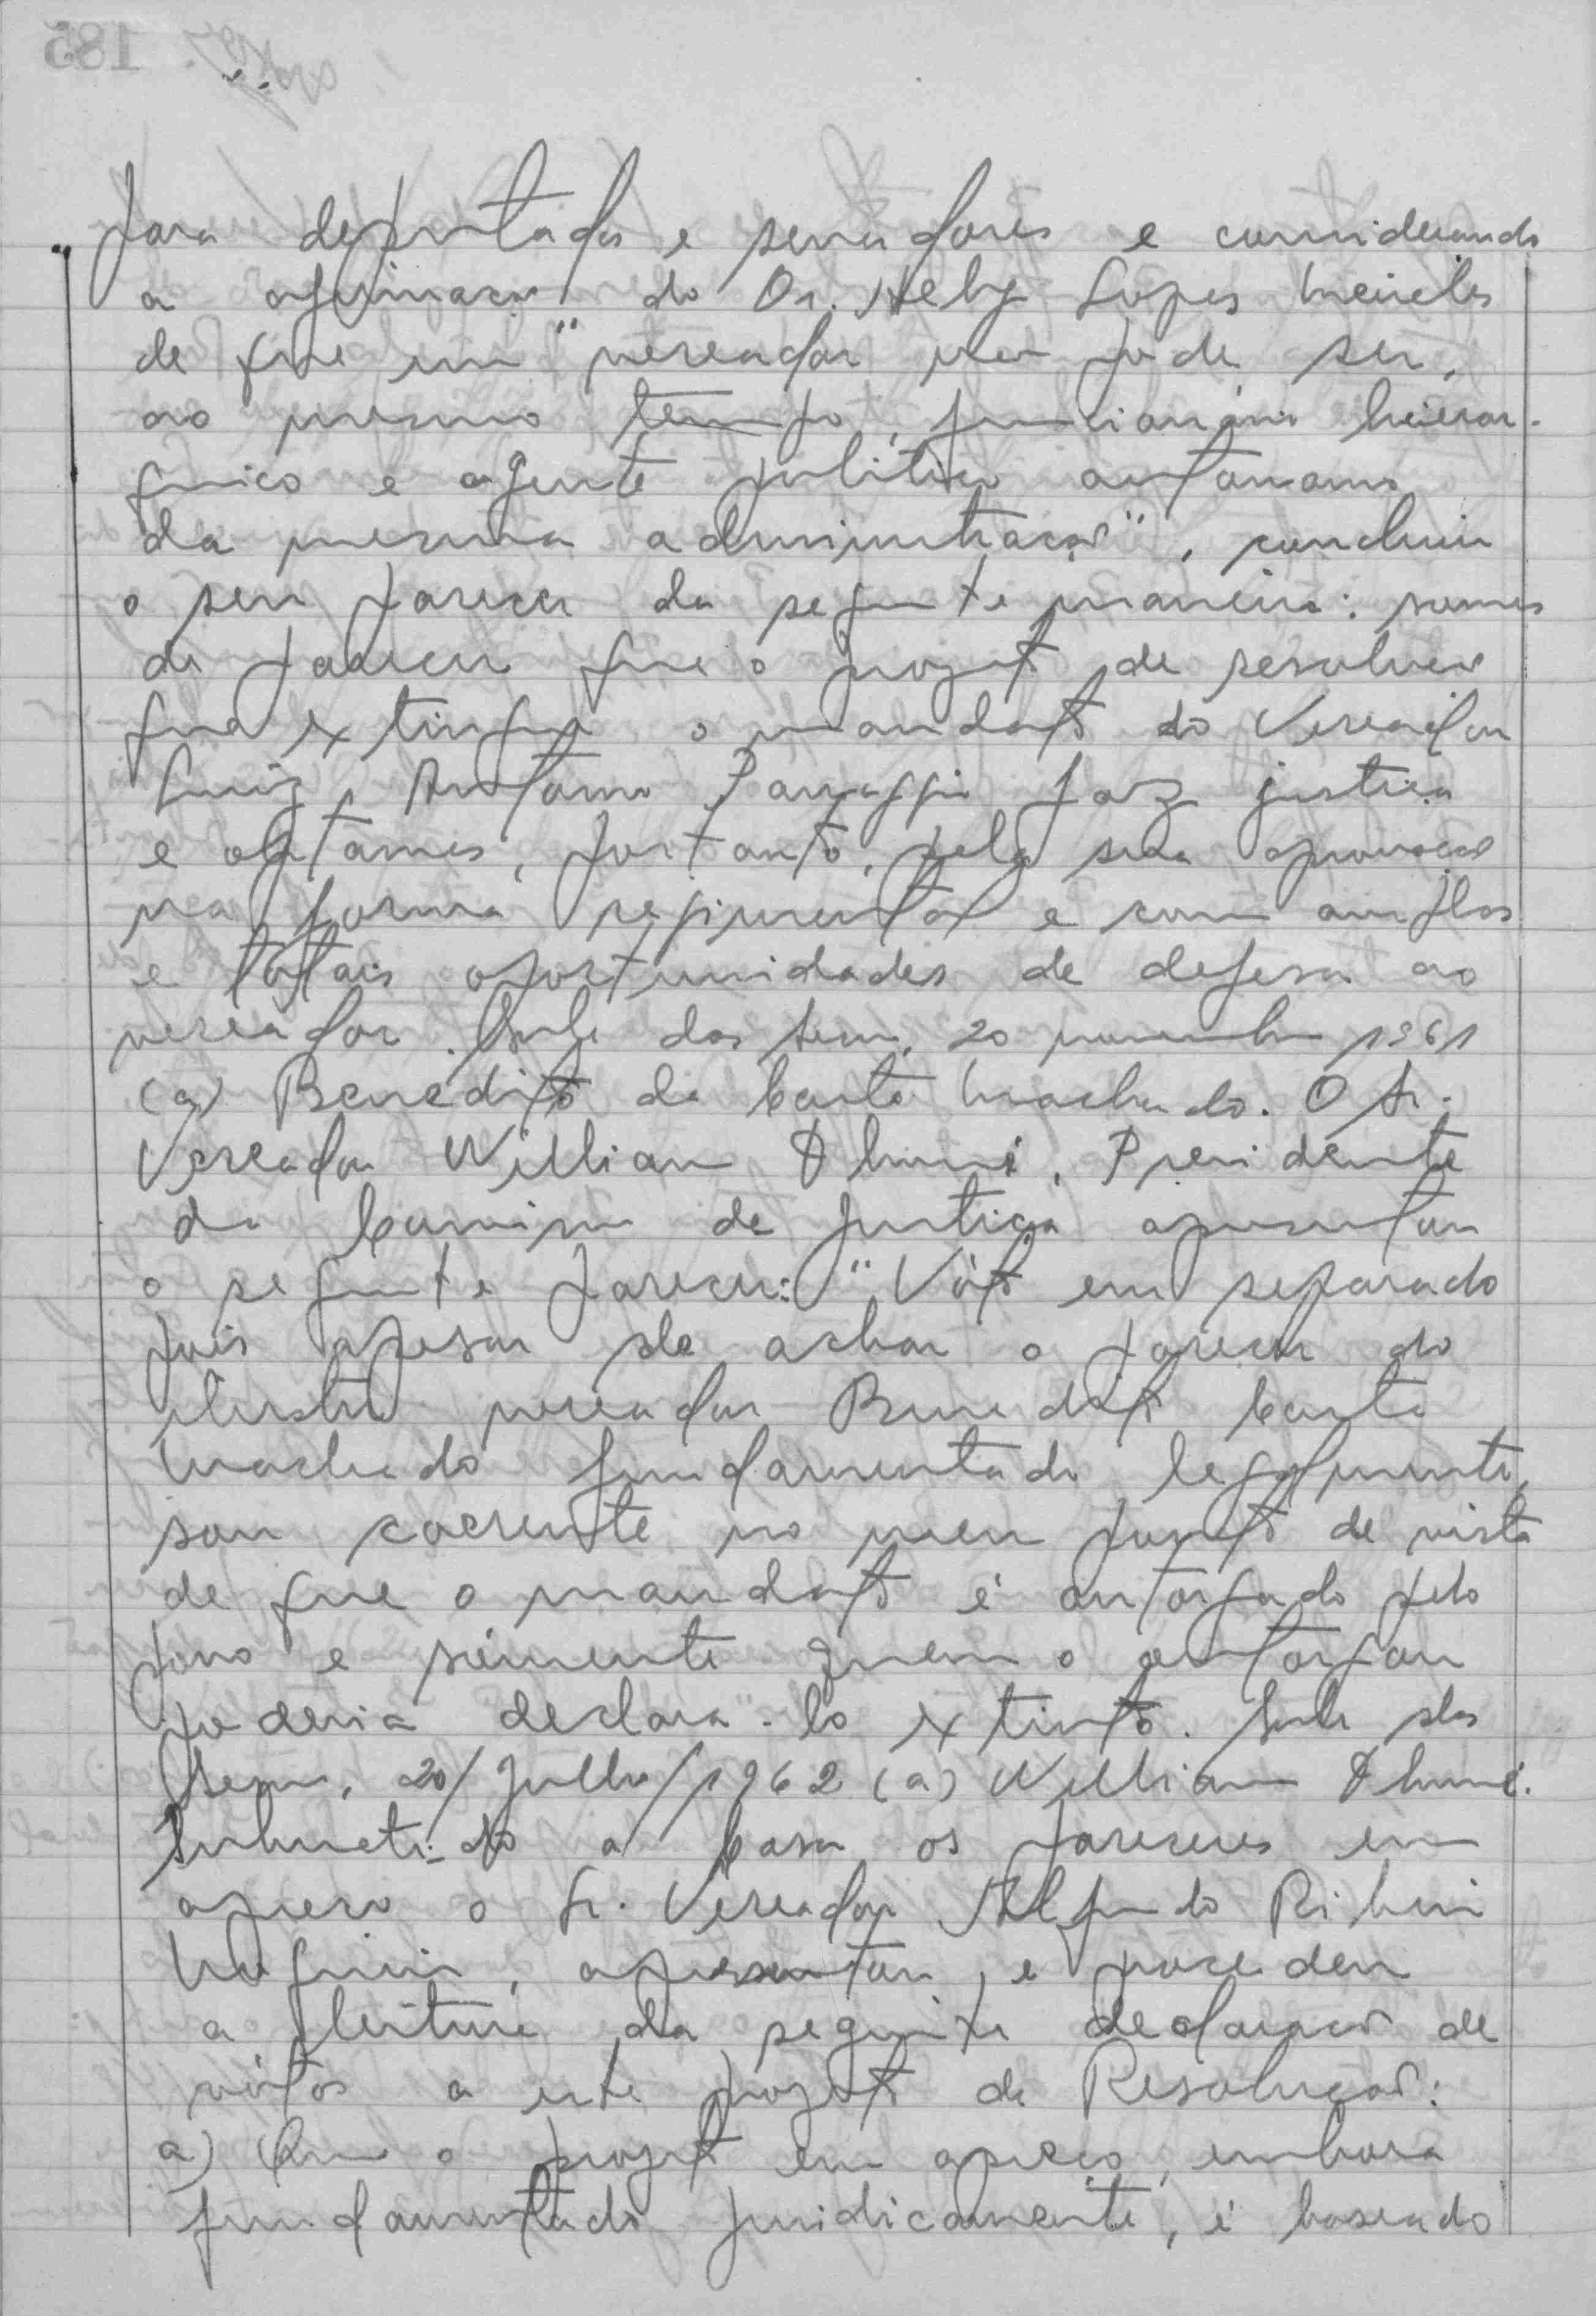 para deputados e senadores e considerando
a afirmação do Dr. Hely Lopes Meireles
de que um "vereador não pode ser,
ao mesmo tempo, funcionário hierar-
quico e agente político autônomo
da mesma administração", concluiu
o seu parecer da seguinte maneira: somos
de parecer que o projeto de resolução
que extingue o mandato do Vereador
Luiz Antonio Panaggio faz justiça
e optamos, portanto, pela sua aprovação
na forma regimental e com amplas
e totais oportunidades de defesa ao
vereador. Sala das Sess. 20 novembro 1961
(a) Benedito da Costa Machado. O Sr.
Vereador Willian Dhumé, Presidente
da Comissão de Justiça apresentou
o seguinte parecer: "Voto em separado
pois apesar de achar o parecer do
ilustre vereador Benedito Costa
Machado fundamentado legalmente,
sou coerente no meu ponto de vista
de que o mandato é outorgado pelo
povo e sómente quem o outorgou
poderia declara-lo extinto. Sala das
Sess. 20/Julho/1962 (a) Willian Dhumé.
Submetido a Casa os pareceres em
apreço o Sr. Vereador Alfredo
apresentou e procedeu
a leitura da seguinte declaração de
vótos a este projeto de Resolução:
a) Que o projeto em apreço, embora
fundamentado juridicamente, é baseado